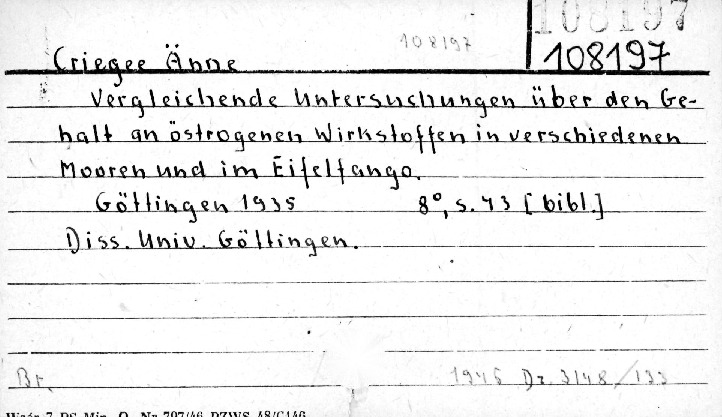 108197
108197
Criegee Änne
108197
Vergleichende Untersuchungen über den Ge-
halt an östrogenen Wirkstoffen in verschiedenen
Mooren und im Eifelfango.
Göttingen 1935 8°, s. 43 [bibl.]
Diss. Univ. Göttingen.
Br.
1945 Dz. 3148/133